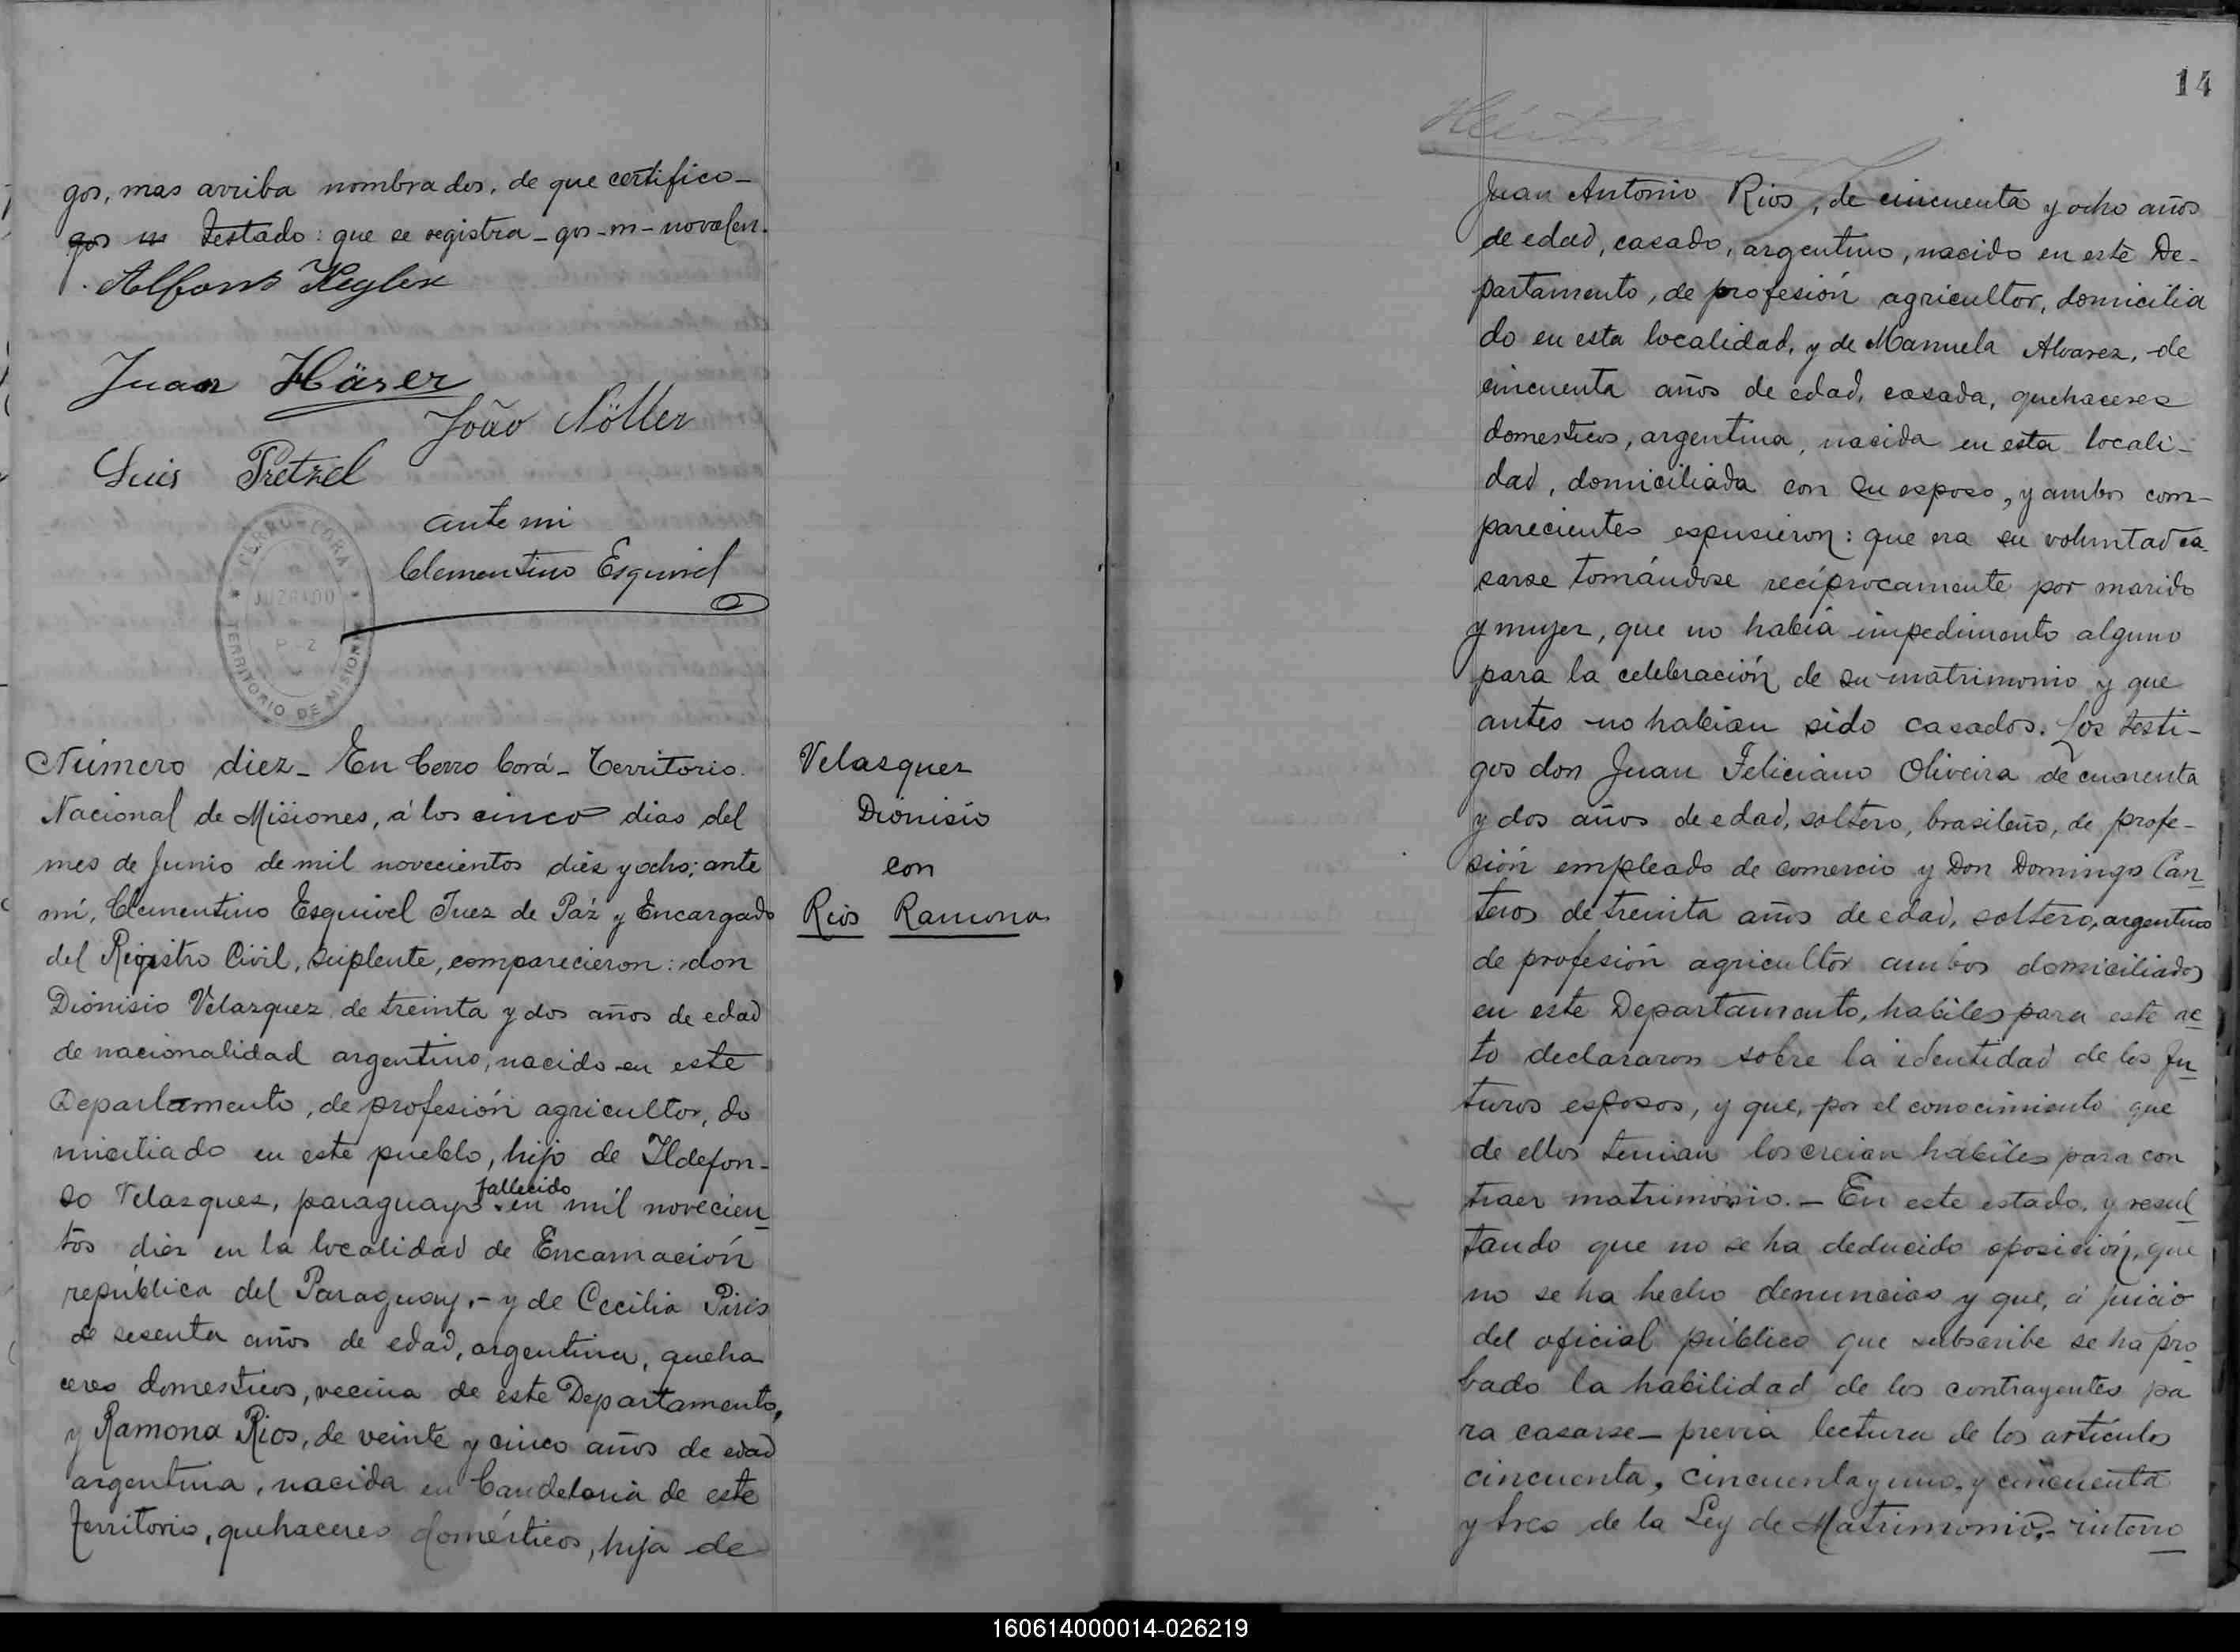 gos, mas arriba nombrados, de que certifico_
gos m Testado: que se registra_gos_m_novalen.
Alfons Kegler
Juan Häser
João Nöller
Luis Pretzel
ante mi
Clementino Esquivel
CERRO-CORA
JUZGADO
TERRITORIO DE MISIONES
Número diez_ En Cerro Corá_ Territorio
Nacional de Misiones, á los cinco dias del
mes de Junio de mil novecientos diez y ocho; ante
mí, Clementino Esquivel Juez de Paz y Encargado
del Registro Civil, Suplente, comparecieron: don
Dionisio Velazquez de treinta y dos años de edad
de nacionalidad argentino, nacido en este
Departamento, de profesión agricultor, do
miciliado en este pueblo, hijo de Ildefon-
so Velazquez, paraguayo fallecido en mil novecien
tos diez en la localidad de Encarnación
república del Paraguay,- y de Cecilia Piris
de sesenta años de edad, argentina, queha
ceres domesticos, vecina de este Departamento,
y Ramona Rios, de veinte y cinco años de edad
argentina, nacida en Candelaria de este
Territorio, quehaceres domésticos, hija de
Velasquez
Dionisio
con
Rios Ramona
14
Juan Antonio Rios, de cincuenta y ocho años
de edad, casado, argentino, nacido en este De-
partamento, de profesión agricultor, domicilia
do en esta localidad, y de Manuela Alvarez, de
cincuenta años de edad, casada, quehaceres
domesticos, argentina, nacida en esta locali-
dad, domiciliada con su esposo, y ambos com-
parecientes espusieron: que era su voluntad ca-
sarse tomándose recíprocamente por marido
y mujer, que no había impedimento alguno
para la celebración de su matrimonio y que
antes no habian sido casados. Los testi-
gos don Juan Feliciano Oliveira de cuarenta
y dos años de edad, soltero, brasileño, de profe-
sión empleado de comercio y Don Domingo Can
teros de treinta años de edad, soltero, argentino
de profesión agricultor ambos domiciliados
en este Departamento, habiles para este ac
to declararon sobre la identidad de los fu
turos esposos, y que, por el conocimiento que
de ellos tenian los creian habiles para con
traer matrimonio.- En este estado, y resul
tando que no se ha deducido oposición, que
no se ha hecho denuncias y que, á juicio
del oficial público que subscribe se ha pro
bado la habilidad de los contrayentes pa
ra casarse_ previa lectura de los artículos
cincuenta, cincuenta y uno, y cincuenta
y tres de la Ley de Matrimonio,- interro
160614000014-026219